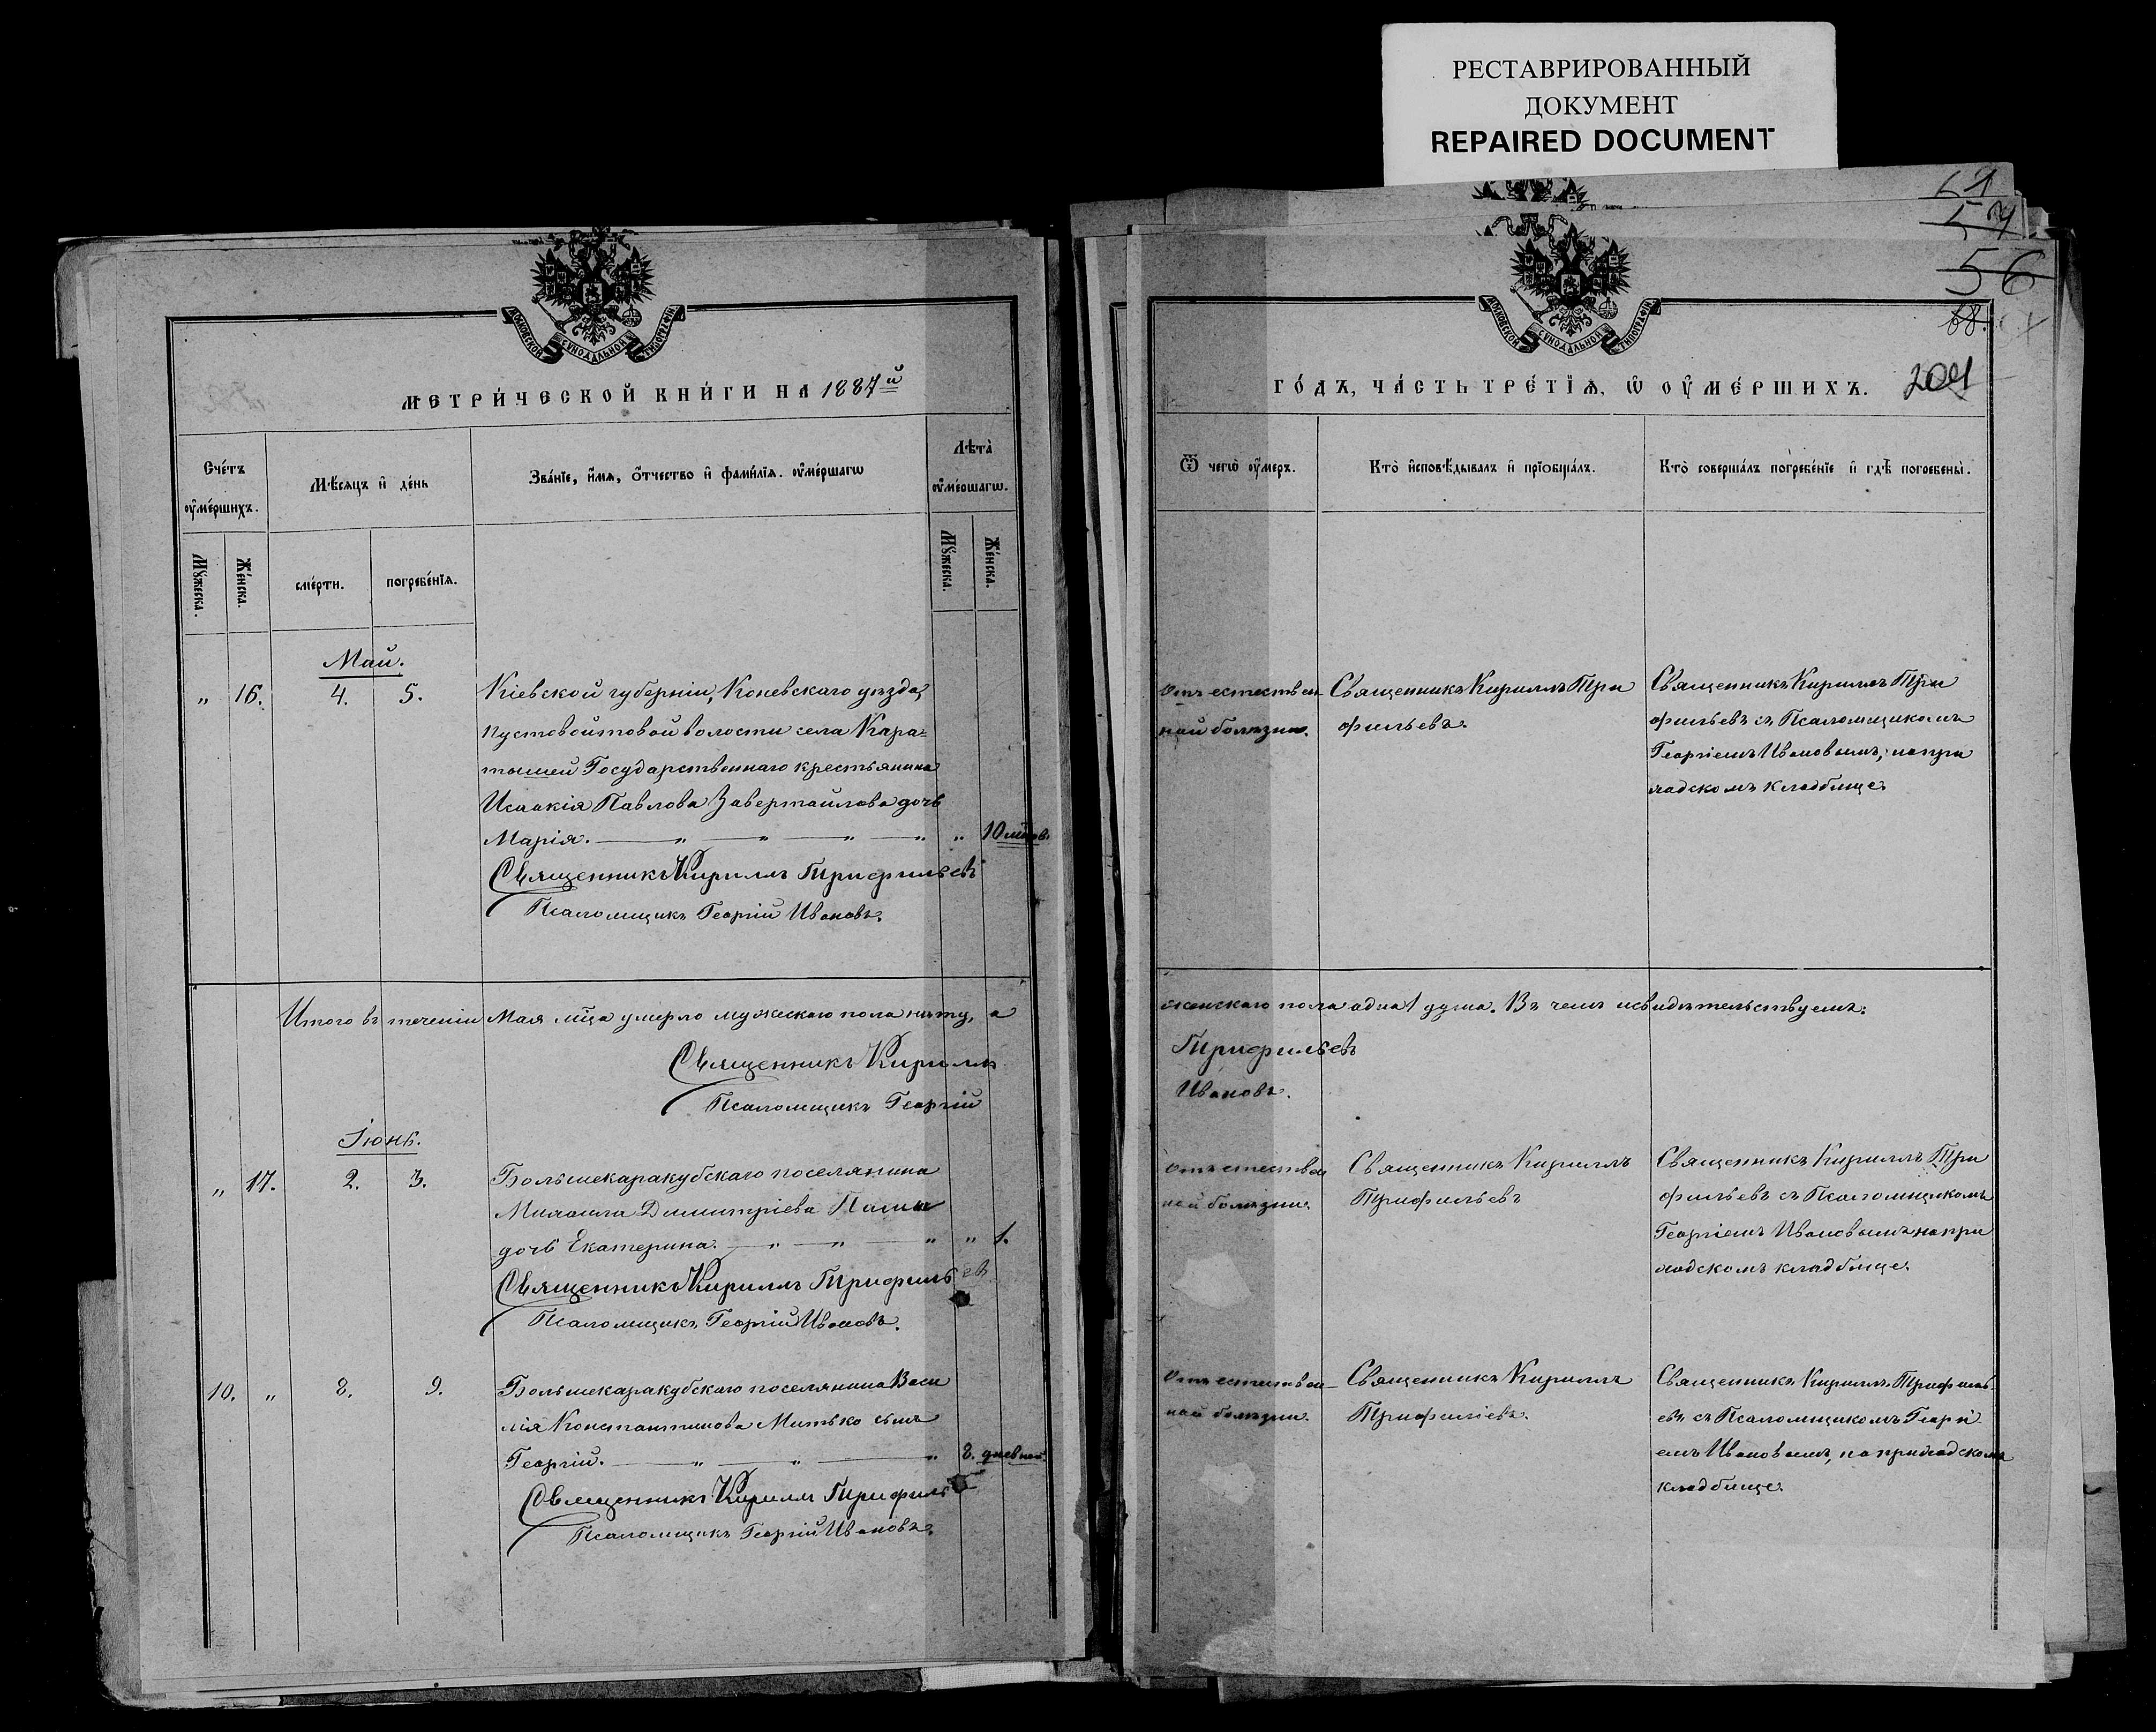 РЕСТАВРИРОВАННЫЙ
ДОКУМЕНТ
REPAIRED DOCUMENT
61
57
56
68.
204
МОСКОВСКОЙ СѴНОДАЛЬНОЙ ТИПОГРАФІИ
МЕТРИ́ЧЕСКОЙ КНИ́ГИ НА 1887й
Сче́тъ ᲂу҆ме́ршихъ.
Мѣ́сяцъ и҆ де́нь
Зва́нїе, и҆́мѧ, ѻ҆́тчество и҆ фами́лїѧ. ᲂу҆ме́ршагѡ
Лѣ́та ᲂу҆ме́ршагѡ.
Мꙋ́жеска.
Же́нска.
сме́рти.
погребе́нїѧ.
Мꙋ́жеска.
Же́нска.
Май.
„ 16. 4. 5. Кіевской губерніи, Коневскаго уѣзда,
пустовойтовой волости села Кара=
тышей Государственнаго крестьянина
Исаакія Павлова Завертайлова дочь
Марія. — „ — „ — „ — „ „ 10 мцов.
Священникъ Кириллъ Трифильевъ
Псаломщикъ Георгій Ивановъ.
Итого въ теченіи Мая мца умерло мужескаго пола нѣту, а
Священникъ Кириллъ
Псаломщикъ Георгій
Іюнь.
„ 17. 2. 3. Большекаракубскаго поселянина
Михаила Димитріева
дочь Екатерина. — „ — „ — „ „ 1.
Священникъ Кириллъ Трифильевъ
Псаломщикъ Георгій Ивановъ.
10. „ 8. 9. Большекаракубскаго поселянина Васи
лія Константинова Митько сынъ
Георгій. — „ — „ — „ 8. дневный
Священникъ Кириллъ Трифильевъ
Псаломщикъ Георгій Ивановъ.
МОСКОВСКОЙ СѴНОДАЛЬНОЙ ТИПОГРАФІИ
ГО́ДЪ, ЧА́СТЬ ТРЕ́ТЇѦ, Ѡ҆ ОУ҆МЕ́РШИХЪ.
Ѿ чегѡ̀ ᲂу҆́меръ.
Кто̀ и҆сповѣ́дывалъ и҆ прїѡбща́лъ.
Кто̀ соверша́лъ погребе́нїе и҆ гдѣ̀ погребены̀.
Отъ естествен
ной болѣзни.
Священникъ Кириллъ Три
фильевъ.
Священникъ Кириллъ Три
фильевъ съ Псаломщикомъ
Георгіемъ Ивановымъ, на при
ходскомъ кладбище.
женскаго пола одна 1 душа. Въ чемъ и свидѣтельствуемъ:
Трифильевъ
Ивановъ.
Отъ естествен
ной болѣзни.
Священникъ Кириллъ
Трифильевъ
Священникъ Кириллъ Три
фильевъ съ Псаломщикомъ
Георгіемъ Ивановымъ на при
ходскомъ кладбище.
Отъ естествен
ной болѣзни.
Священникъ Кириллъ
Трифиліевъ.
Священникъ Кириллъ Трифиль
евъ съ Псаломщикомъ Георгі
емъ Ивановымъ, на приходскомъ
кладбище.